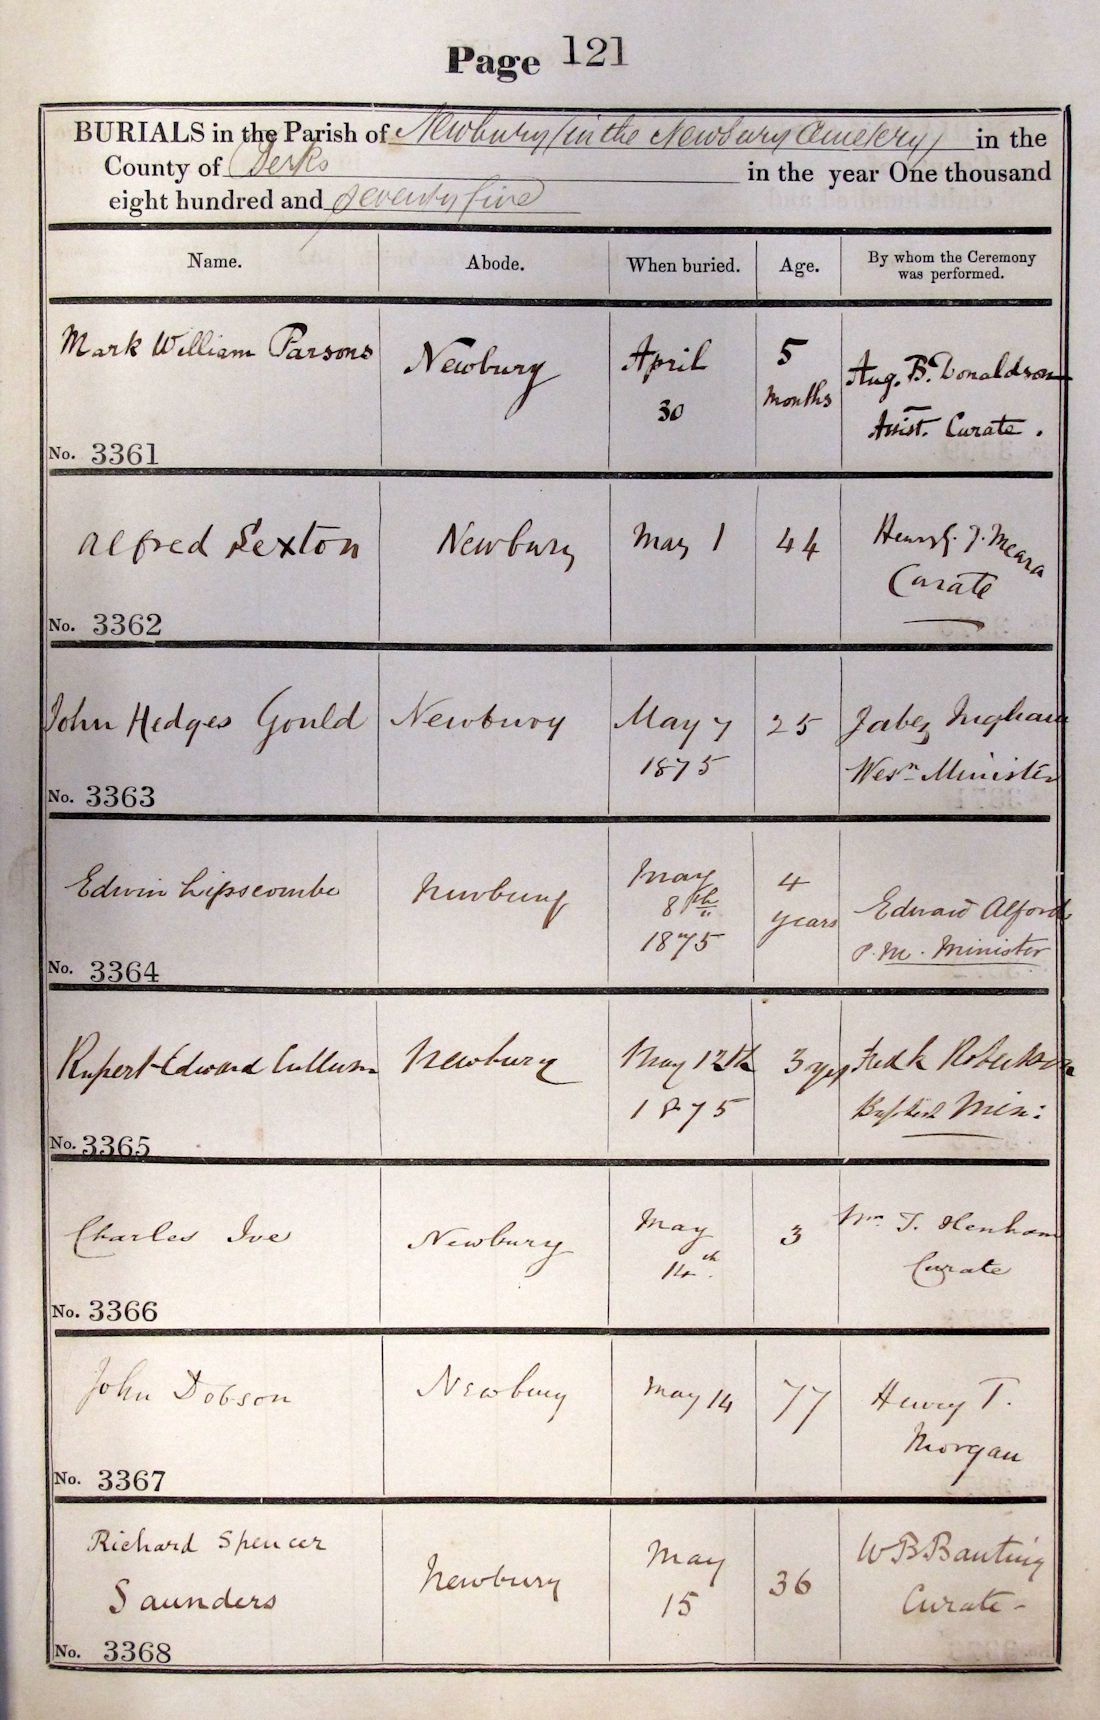 Page 121
BURIALS in the Parish of Newbury (in the Newbury Cemetery) in the
County of Berks in the year One thousand
eight hundred and seventy five
Name. Abode. When buried. Age. By whom the Ceremony
was performed.
Mark William Parsons Newbury April 5 Aug. B. Donaldson
30 Months Assist. Curate.
No. 3361
Alfred Sexton Newbury May 1 44 Henry J. Meara
Curate
No. 3362
John Hedges Gould Newbury May 7 25 Jabez Ingham
1875 Wesn Minister
No. 3363
Edwin Lipscombe Newbury May 4
8th years Edward Alford
1875 P. M. Minister
No. 3364
Rupert Edward Cullum Newbury May 12th 3 yrs Fredk Robertson
1875 Baptist Min:
No. 3365
Charles Ive Newbury May 3 Wm T. Henham
14th. Curate
No. 3366
John Dobson Newbury May 14 77 Henry T.
Morgan
No. 3367
Richard Spencer Newbury May 36 W B Banting
Saunders 15 Curate -
No. 3368